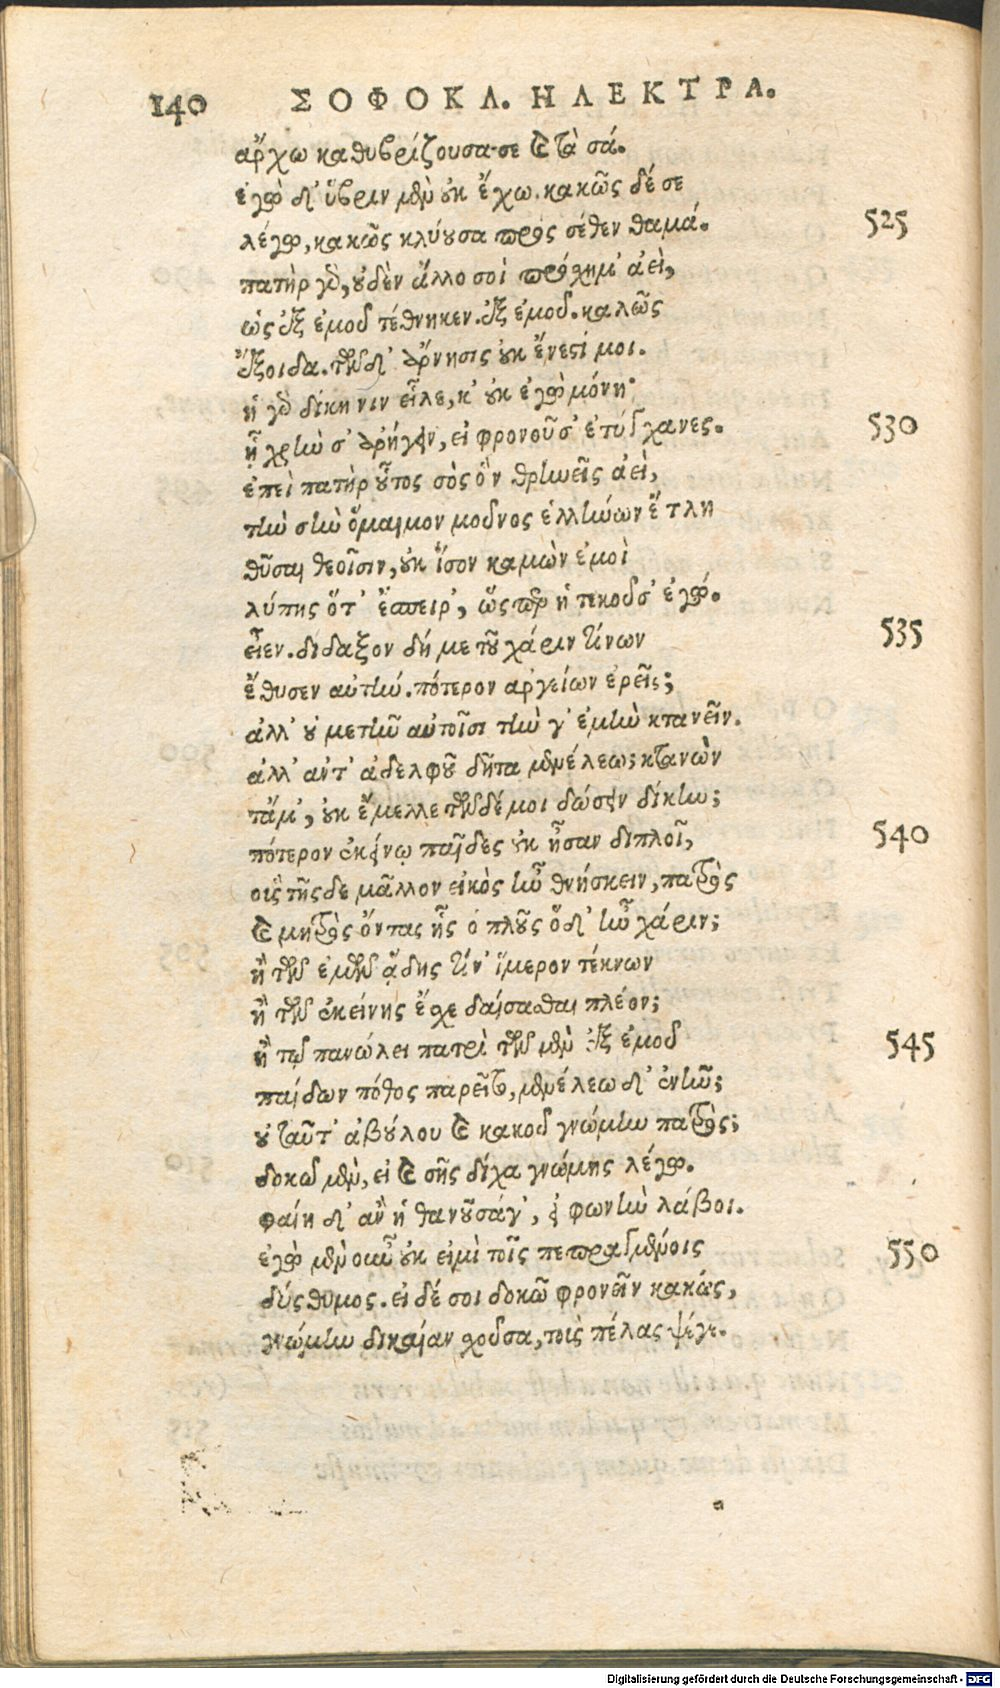 140 ΣΟΦΟΚΛ. ΗΛΕΚΤΡΑ.
ἄρχω καθυβρίζουσα σε καὶ τὰ σά.
ἐγὼ δ' ὕβριν μὲν οὐκ ἔχω. κακῶς δέ σε
λέγω, κακῶς κλύουσα πρὸς σέθεν θαμά. 525
πατὴρ γὰρ, οὐδὲν ἄλλο σοὶ πρόχημ' ἀεὶ,
ὡς ἐξ ἐμοῦ τέθνηκεν. ἐξ ἐμοῦ. καλῶς
ἔξοιδα. τῶνδ' ἄρνησις οὐκ ἔνεστί μοι.
ἡ γὰρ δίκη νιν εἷλε, κ' οὐκ ἐγὼ μόνη·
ᾗ χρὴν σ' ἀρήγειν, εἰ φρονοῦσ' ἐτύγχανες. 530
ἐπεὶ πατὴρ οὗτος σὸς ὃν θρηνεῖς ἀεὶ,
τὴν σὴν ὅμαιμον μοῦνος ἑλλήνων ἔτλη
θῦσαι θεοῖσιν, οὐκ ἴσον καμὼν ἐμοὶ
λύπης ὅτ' ἔσπειρ', ὥσπερ ἡ τεκοῦσ' ἐγώ.
εἶεν. δίδαξον δή με τοῦ χάριν τίνων 535
ἔθυσεν αὐτήν. πότερον ἀργείων ἐρεῖς;
ἀλλ' οὐ μετῆν αὐτοῖσι τὴν γ' ἐμὴν κτανεῖν.
ἀλλ' ἀντ' ἀδελφοῦ δῆτα μενέλεω; κτανὼν
τἄμ', οὐκ ἔμελλε τῶνδέ μοι δώσειν δίκην;
πότερον ἐκείνῳ παῖδες οὐκ ἦσαν διπλοῖ, 540
οἷς τῆσδε μᾶλλον εἰκὸς ἦν θνήσκειν, πατρὸς
καὶ μητρὸς ὄντας ἧς ὁ πλοῦς ὅδ' ἦν χάριν;
ἢ τῶν ἐμῶν ᾅδης τίν' ἵμερον τέκνων
ἢ τῶν ἐκείνης ἔσχε δαίσασθαι πλέον;
ἢ τῷ πανώλει πατρὶ τῶν μὲν ἐξ ἐμοῦ 545
παίδων πόθος παρεῖτο, μενέλεω δ' ἐνῆν;
οὐ ταῦτ' ἀβούλου καὶ κακοῦ γνώμην πατρὸς;
δοκῶ μὲν, εἰ καὶ σῆς δίχα γνώμης λέγω.
φαίη δ' ἂν ἡ θανοῦσά γ', εἰ φωνὴν λάβοι.
ἐγὼ μὲν οὖν οὐκ εἰμὶ τοῖς πεπραγμένοις 550
δύσθυμος. εἰ δέ σοι δοκῶ φρονεῖν κακῶς,
γνώμην δικαίαν σχοῦσα, τοὺς πέλας ψέγε.
Digitalisierung gefördert durch die Deutsche Forschungsgemeinschaft - DFG